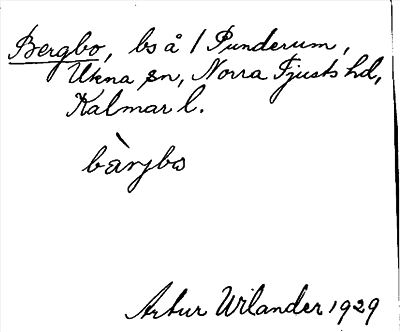 Bergbo, bs å 1 Punderum,
Ukna sn, Norra Tjusts hd,
Kalmar l.
bàrjbω
Artur Wilander 1929